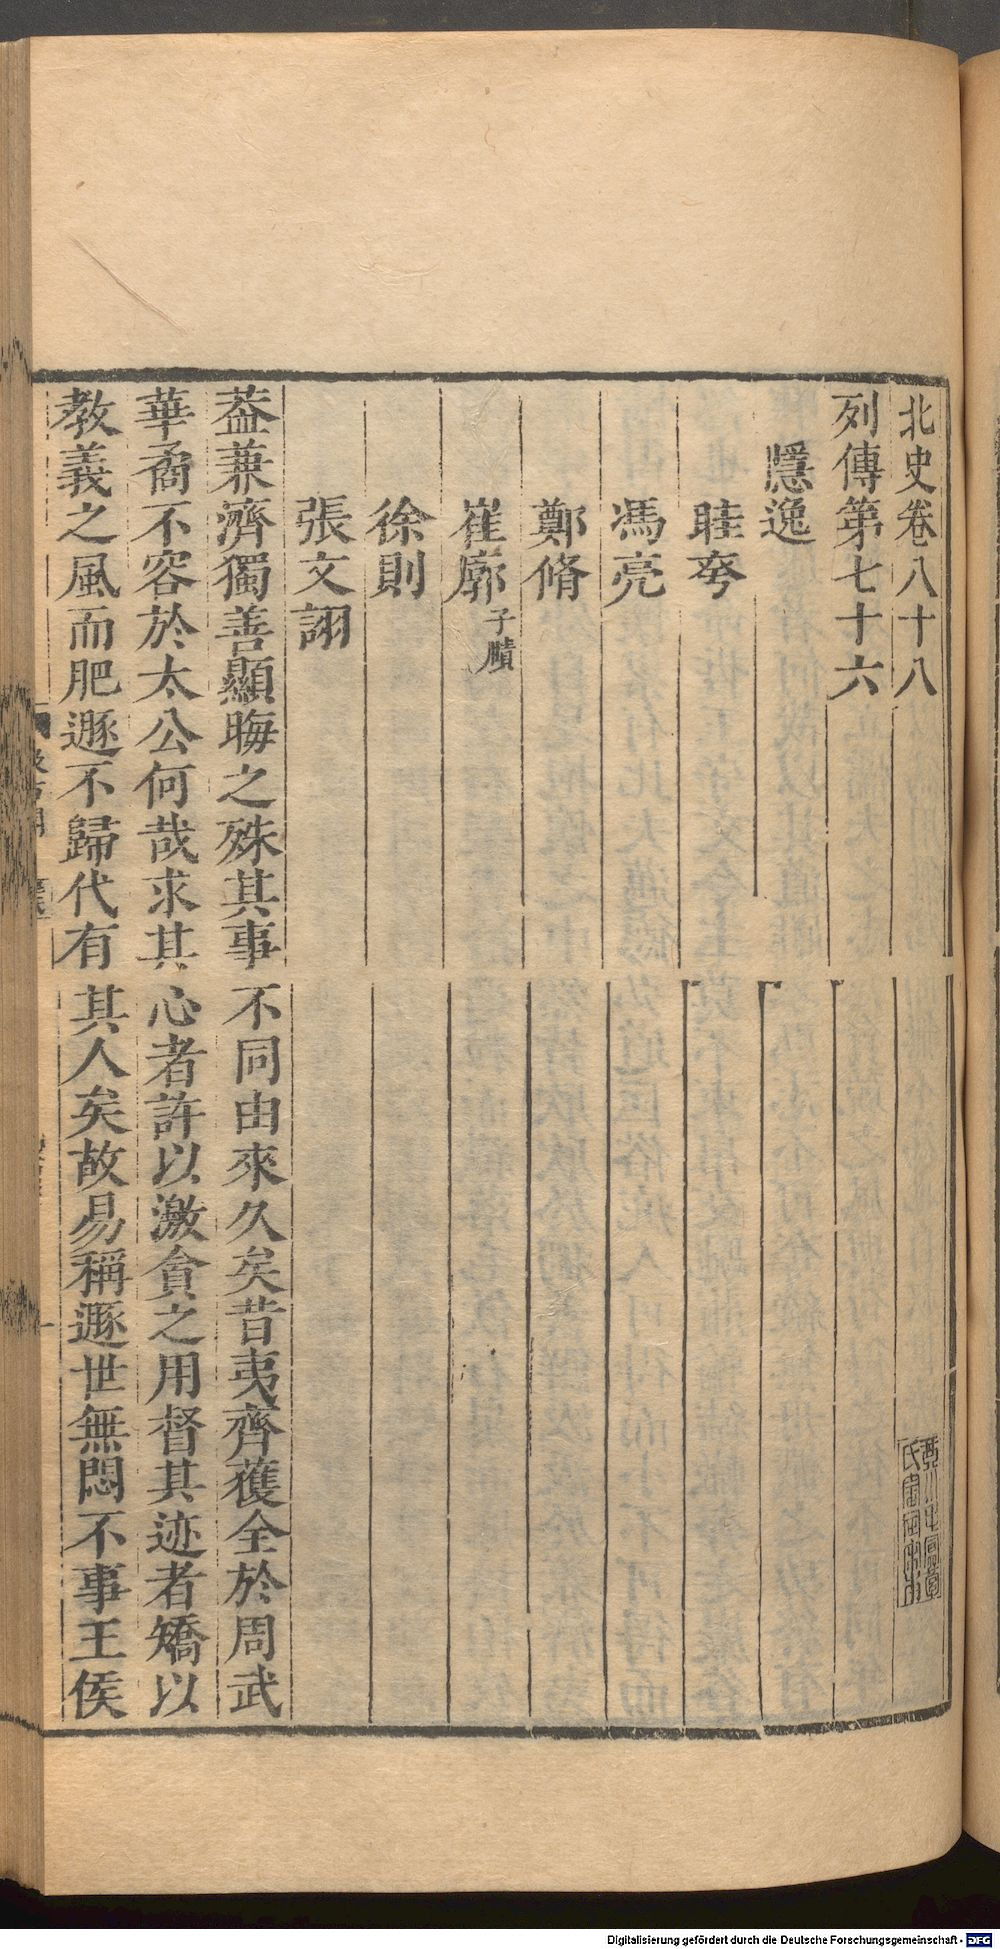 北史卷八十八
列傳第七十六
隱逸
眭夸
馮亮
鄭脩
崔廓子賾
徐則
張文詡
葢兼濟獨善顯晦之殊其事不同由來久矣昔夷齊獲全於周武
華矞不容於太公何哉求其心者許以激貪之用督其迹者矯以
教義之風而肥遯不歸代有其人矣故易稱遯世無悶不事王侯
Digitalisierung gefördert durch die Deutsche Forschungsgemeinschaft - DFG